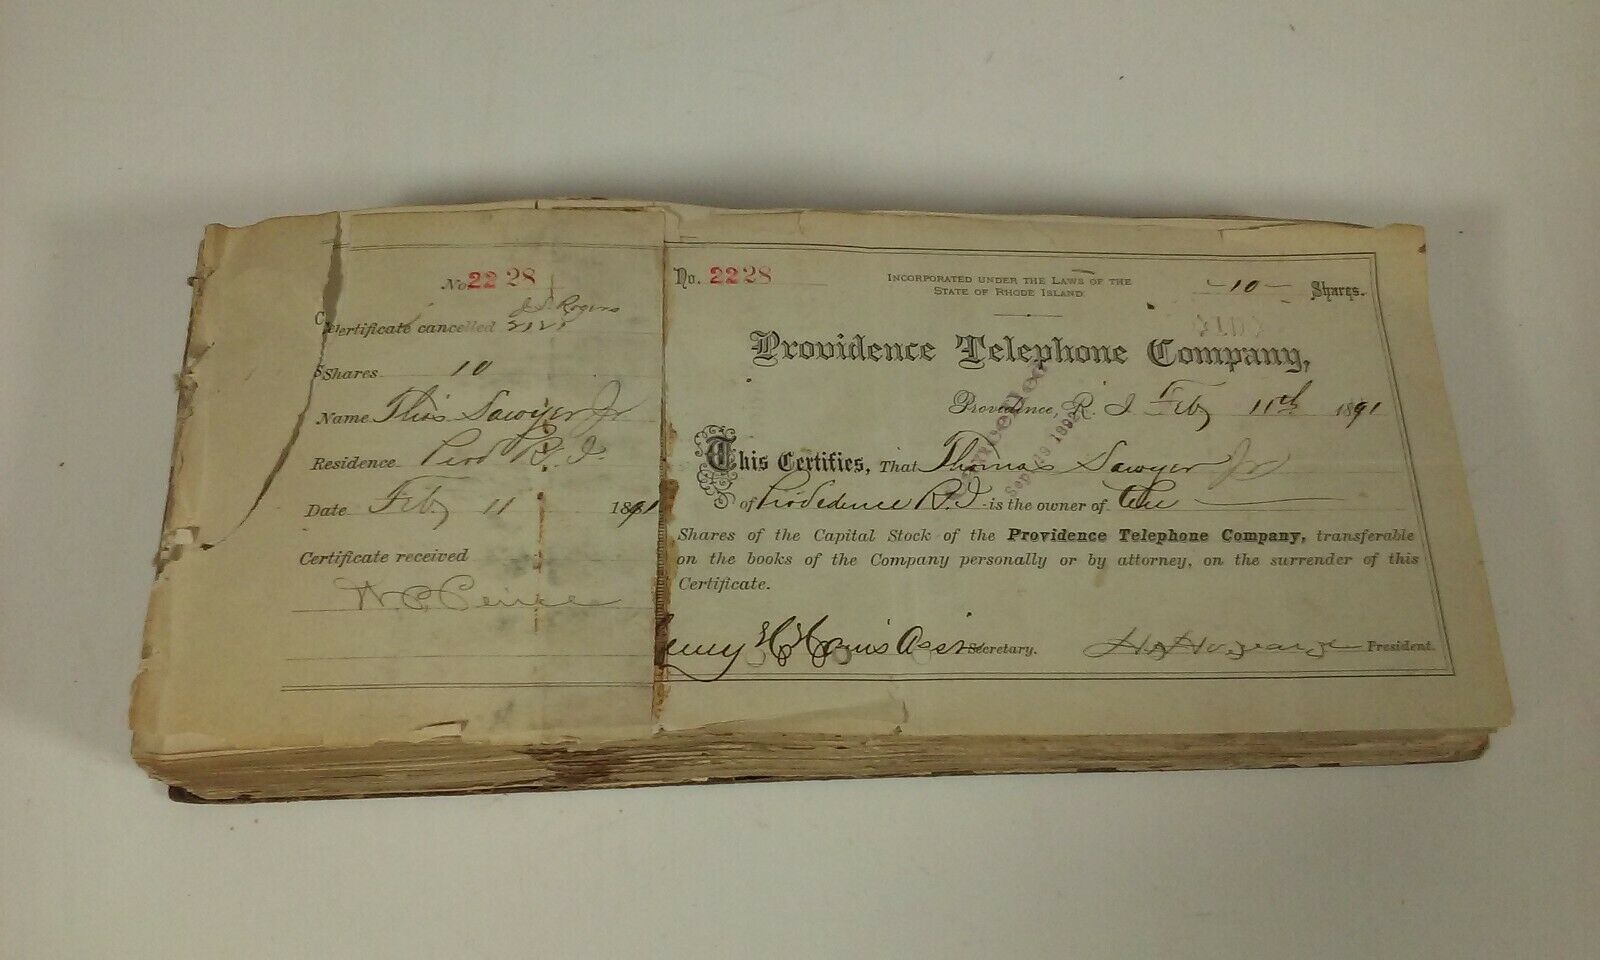 No 2228
Certificate cancelled J. S. Rogers
2121
Shares 10
Name Thos Sawyer Jr
Residence Prov R. I.
Date Feb 11 1891
Certificate received
No. 2228
INCORPORATED UNDER THE LAWS OF THE
STATE OF RHODE ISLAND.
-10- Shares.
Providence Telephone Company,
Providence, R. I Feb 11th 1891
Cancelled
Sep 1892
This Certifies, That Thomas Sawyer Jr
of Providence R. I. is the owner of Ten
Shares of the Capital Stock of the Providence Telephone Company, transferable
on the books of the Company personally or by attorney, on the surrender of this
Certificate.
Secretary.
President.